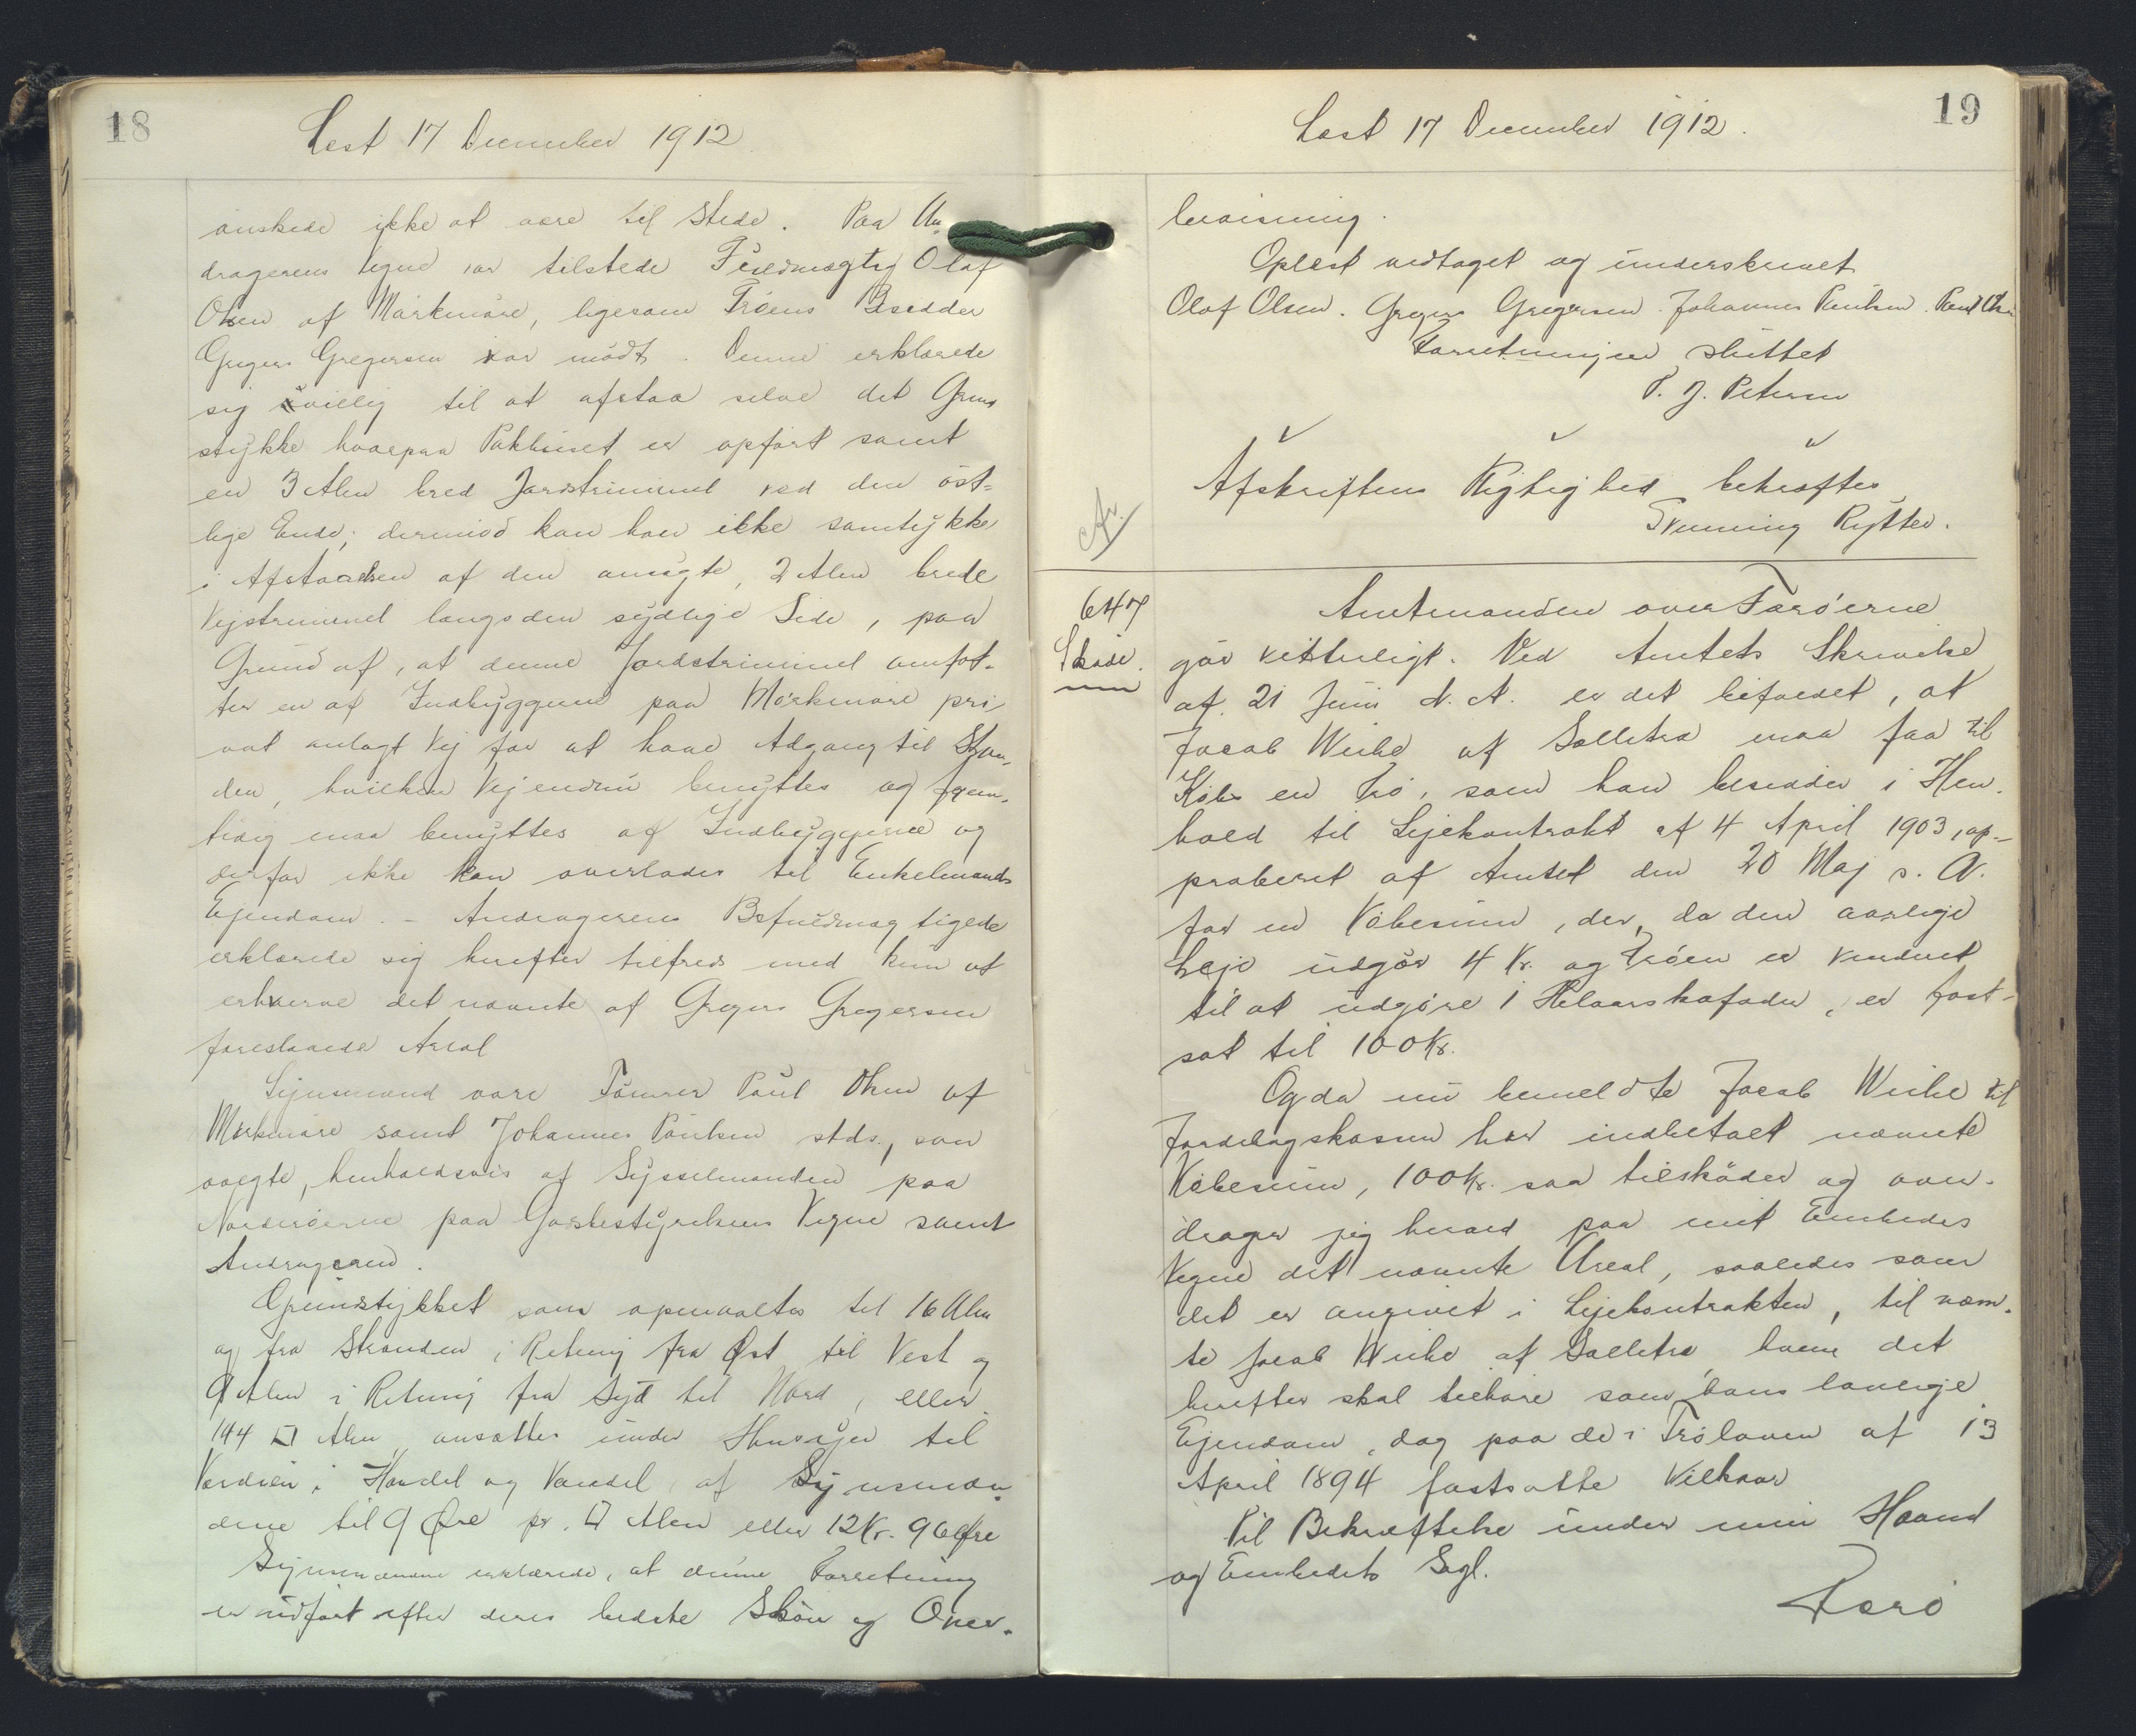 18
Læst 17 December 1912
ønskede ikke at være til Stede. Paa An
dragerens Vegne var tilstede Fuldmægtig Olaf
Olsen af Mårkmøre, ligesom Trøens Besidder
Gregers Gregersen var mødt. Denne erklærede
sig villig til at afstaa selve det Grund
stykke hvorpaa Pakhuset er opført samt
en 3 Alen bred Jordstrimmel ved den øst-
lige Ende; derimod kan han ikke samtykke
i Afstaaelsen af den ansøgte, 2 Alen brede
Vejstrimmel langs den sydlige Side, paa
Grund af, at denne Jordstrimmel omfat-
ter en af Indbyggerne paa Mørkmøre pri
vat anlagt Vej for at have Adgang til Stran-
den, hvilken Vej endnu benyttes og frem-
tidig maa benyttes af Indbyggerne og
derfor ikke kan overlades til Enkeltmands
Ejendom. - Andragerens Befuldmægtigede
erklærede sig herefter tilfreds med kun at
erhverve det nævnte af Gregers Gregersen
foreslaaede Areal
Synsmænd vare Tømrer Poul Olsen af
Mørkmøre samt Johannes Poulsen stds., som
valgte, henholdsvis af Sysselmanden paa
Norderøerne paa Jordbestyrelsens Vegne samt
Andrageren.
Grundstykket som opmaaltes til 16 Alen
og fra Stranden i Retning fra Øst til Vest og
9 Alen i Retning fra Syd til Nord, eller
144 □ Alen ansattes under Hensyn til
Værdien i Handel og Vandel af Synsmæn-
dene til 9 Øre pr. □ Alen eller 12 Kr. 96 Øre
Synsmændene erklærede, at denne Forretning
er udført efter deres bedste Skøn og Over-
19
Læst 17 December 1912.
bevisning.
Oplæst vedtaget og underskrevet
Olaf Olsen. Gregers Gregersen. Johannes Poulsen. Poul Olsen
Forretningen sluttet
P. J. Petersen
Afskriftens Rigtighed bekræftes
Svenning Rytter.
647
Skøde.
Amtmanden over Færøerne
gør vitterligt. Ved Amtets Skrivelse
af 21 Juni d. A. er det bifaldet, at
Jacob Weihe af Selletræ maa faa til
Købs en Trø, som han besidder i Hen-
hold til Lejekontrakt af 4 April 1903, ap-
proberet af Amtet den 20 Maj s. A.
for en Købesum, der, da den aarlige
Leje udgør 4 Kr. og Trøen er vurderet
til at udgøre 1 Helaarskofoder, er fast-
sat til 100 Kr.
Og da nu bemeldte Jacob Weihe til
Jordebogskassen har indbetalt nævnte
Købesum, 100 Kr. saa tilskøder og over-
drager jeg herved paa mit Embedes
Vegne det nævnte Areal, saaledes som
det er angivet i Lejekontrakten, til nævn-
te Jacob Weihe af Selletræ hvem det
herefter skal tilhøre som hans lovlige
Ejendom, dog paa de i Trøloven af 13
April 1894 fastsatte Vilkaar
Til Bekræftelse under min Haand
og Embedets Segl.
Færø